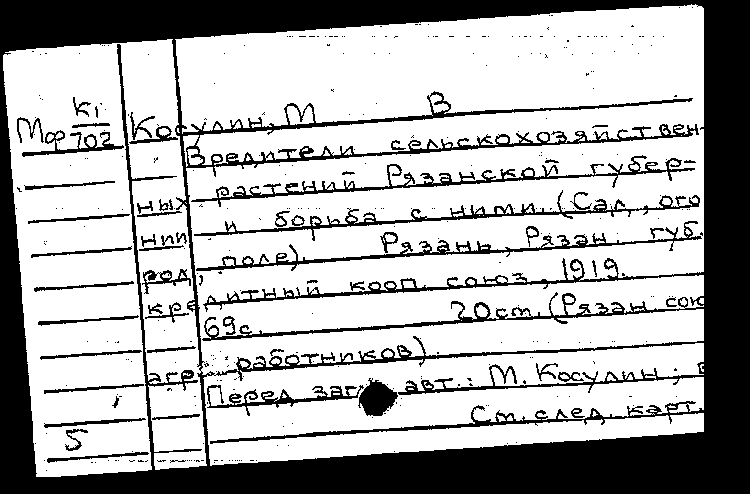 Мф К1/702 Косулин, М В
Вредители сельскохозяйствен-
ных растений Рязанской губер-
нии и борьба с ними. (Сад, ого
род, поле). Рязань, Рязан. губ.
кредитный кооп. союз, 1919.
69с. 20см. (Рязан. сою
агр работников).
Перед заг. авт.: М. Косулин;
5 См. след. карт.